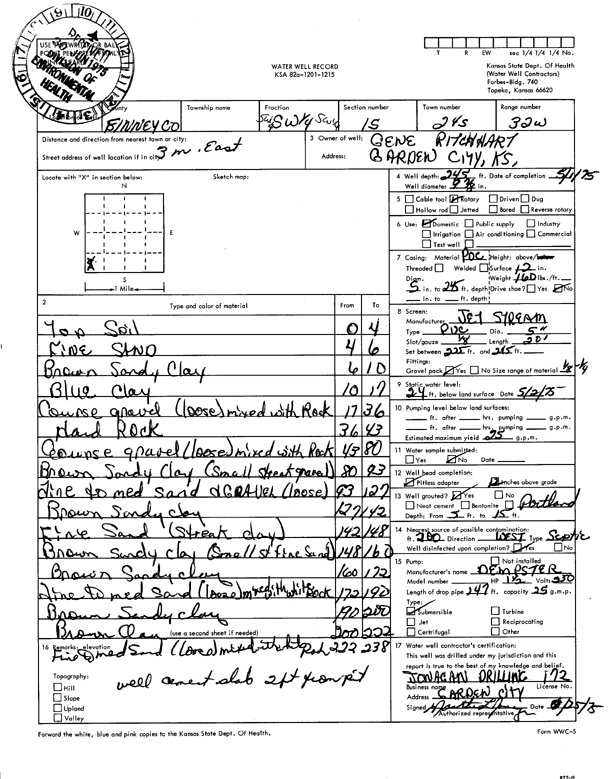 WATER WELL RECORD
KSA 82a-1201-1215
T R EW sec 1/4 1/4 1/4 No.
Kansas State Dept. Of Health
(Water Well Contractors)
Forbes-Bldg. 740
Topeka, Kansas 66620
DIVISION OF
ENVIRONMENTAL
HEALTH
County Township name Fraction Section number Town number Range number
FINNEY CO SW 1/4 15 24s 32w
Distance and direction from nearest town or city:
3 m. East
Street address of well location if in city:
3 Owner of well: GENE RITCHHART
Address: GARDEN CITY, KS,
Locate with "X" in section below: Sketch map:
N
W E
X
S
1 Mile
4 Well depth: 245 ft. Date of completion 5/1/75
Well diameter in.
5 Cable tool Rotary Driven Dug
Hollow rod Jetted Bored Reverse rotary
6 Use: Domestic Public supply Industry
Irrigation Air conditioning Commercial
Test well
7 Casing: Material PVC Height: above/below
Threaded Welded Surface 12 in.
Diam. Weight 160 lbs./ft.
5 in. to 245 ft. depth Drive shoe? Yes No
in. to ft. depth
8 Screen:
Manufacturer JET STREAM
Type PVC Dia. 5"
Slot/gauze 1/8 Length 20'
Set between 225 ft. and 245 ft.
Fittings:
Gravel pack Yes No Size range of material 1/8 - 1/4
9 Static water level:
24 ft. below land surface Date 5/2/75
10 Pumping level below land surfaces:
ft. after hrs. pumping g.p.m.
ft. after hrs. pumping g.p.m.
Estimated maximum yield 75 g.p.m.
11 Water sample submitted:
Yes No Date
12 Well head completion:
Pitless adapter Inches above grade
13 Well grouted? Yes No
Neat cement Bentonite Portland
Depth: From 5 ft. to 15 ft.
14 Nearest source of possible contamination:
ft. 200 Direction WEST Type Septic
Well disinfected upon completion? Yes No
15 Pump: Not installed
Manufacturer's name DEMPSTER
Model number HP 1 1/2 Volts 230
Length of drop pipe 147 ft. capacity 25 g.m.p.
Type:
Submersible Turbine
Jet Reciprocating
Certrifugal Other
2 Type and color of material From To
Top Soil 0 4
FINE SAND 4 6
Brown Sandy Clay 6 10
Blue Clay 10 17
Course gravel (loose) mixed with Rock 17 36
Hard ROCK 36 43
Course gravel (loose) mixed with Rock 43 80
Brown Sandy Clay (Small streak gravel) 80 93
Fine to med sand & GRAVEL (loose) 93 127
Brown Sandy clay 127 142
Fine Sand (streak clay) 142 148
Brown Sandy clay (Small st fine Sand) 148 160
Brown Sandy clay 160 172
Fine to med Sand (loose) mixed with white Rock 172 190
Brown Sandy clay 190 200
Brown Clay (use a second sheet if needed) 200 222
16 Remarks: elevation
Fine to med Sand (loose) mixed white Rock 222 238
Topography:
Hill
Slope
Upland
Valley
well cement slab 2 ft from pit
17 Water well contractor's certification:
This well was drilled under my jurisdiction and this
report is true to the best of my knowledge and belief.
JONAGAN DRILLING 172
Business name License No.
Address GARDEN CITY
Signed Date /25/75
Authorized representative
Forward the white, blue and pink copies to the Kansas State Dept. Of Health.
Form WWC-5